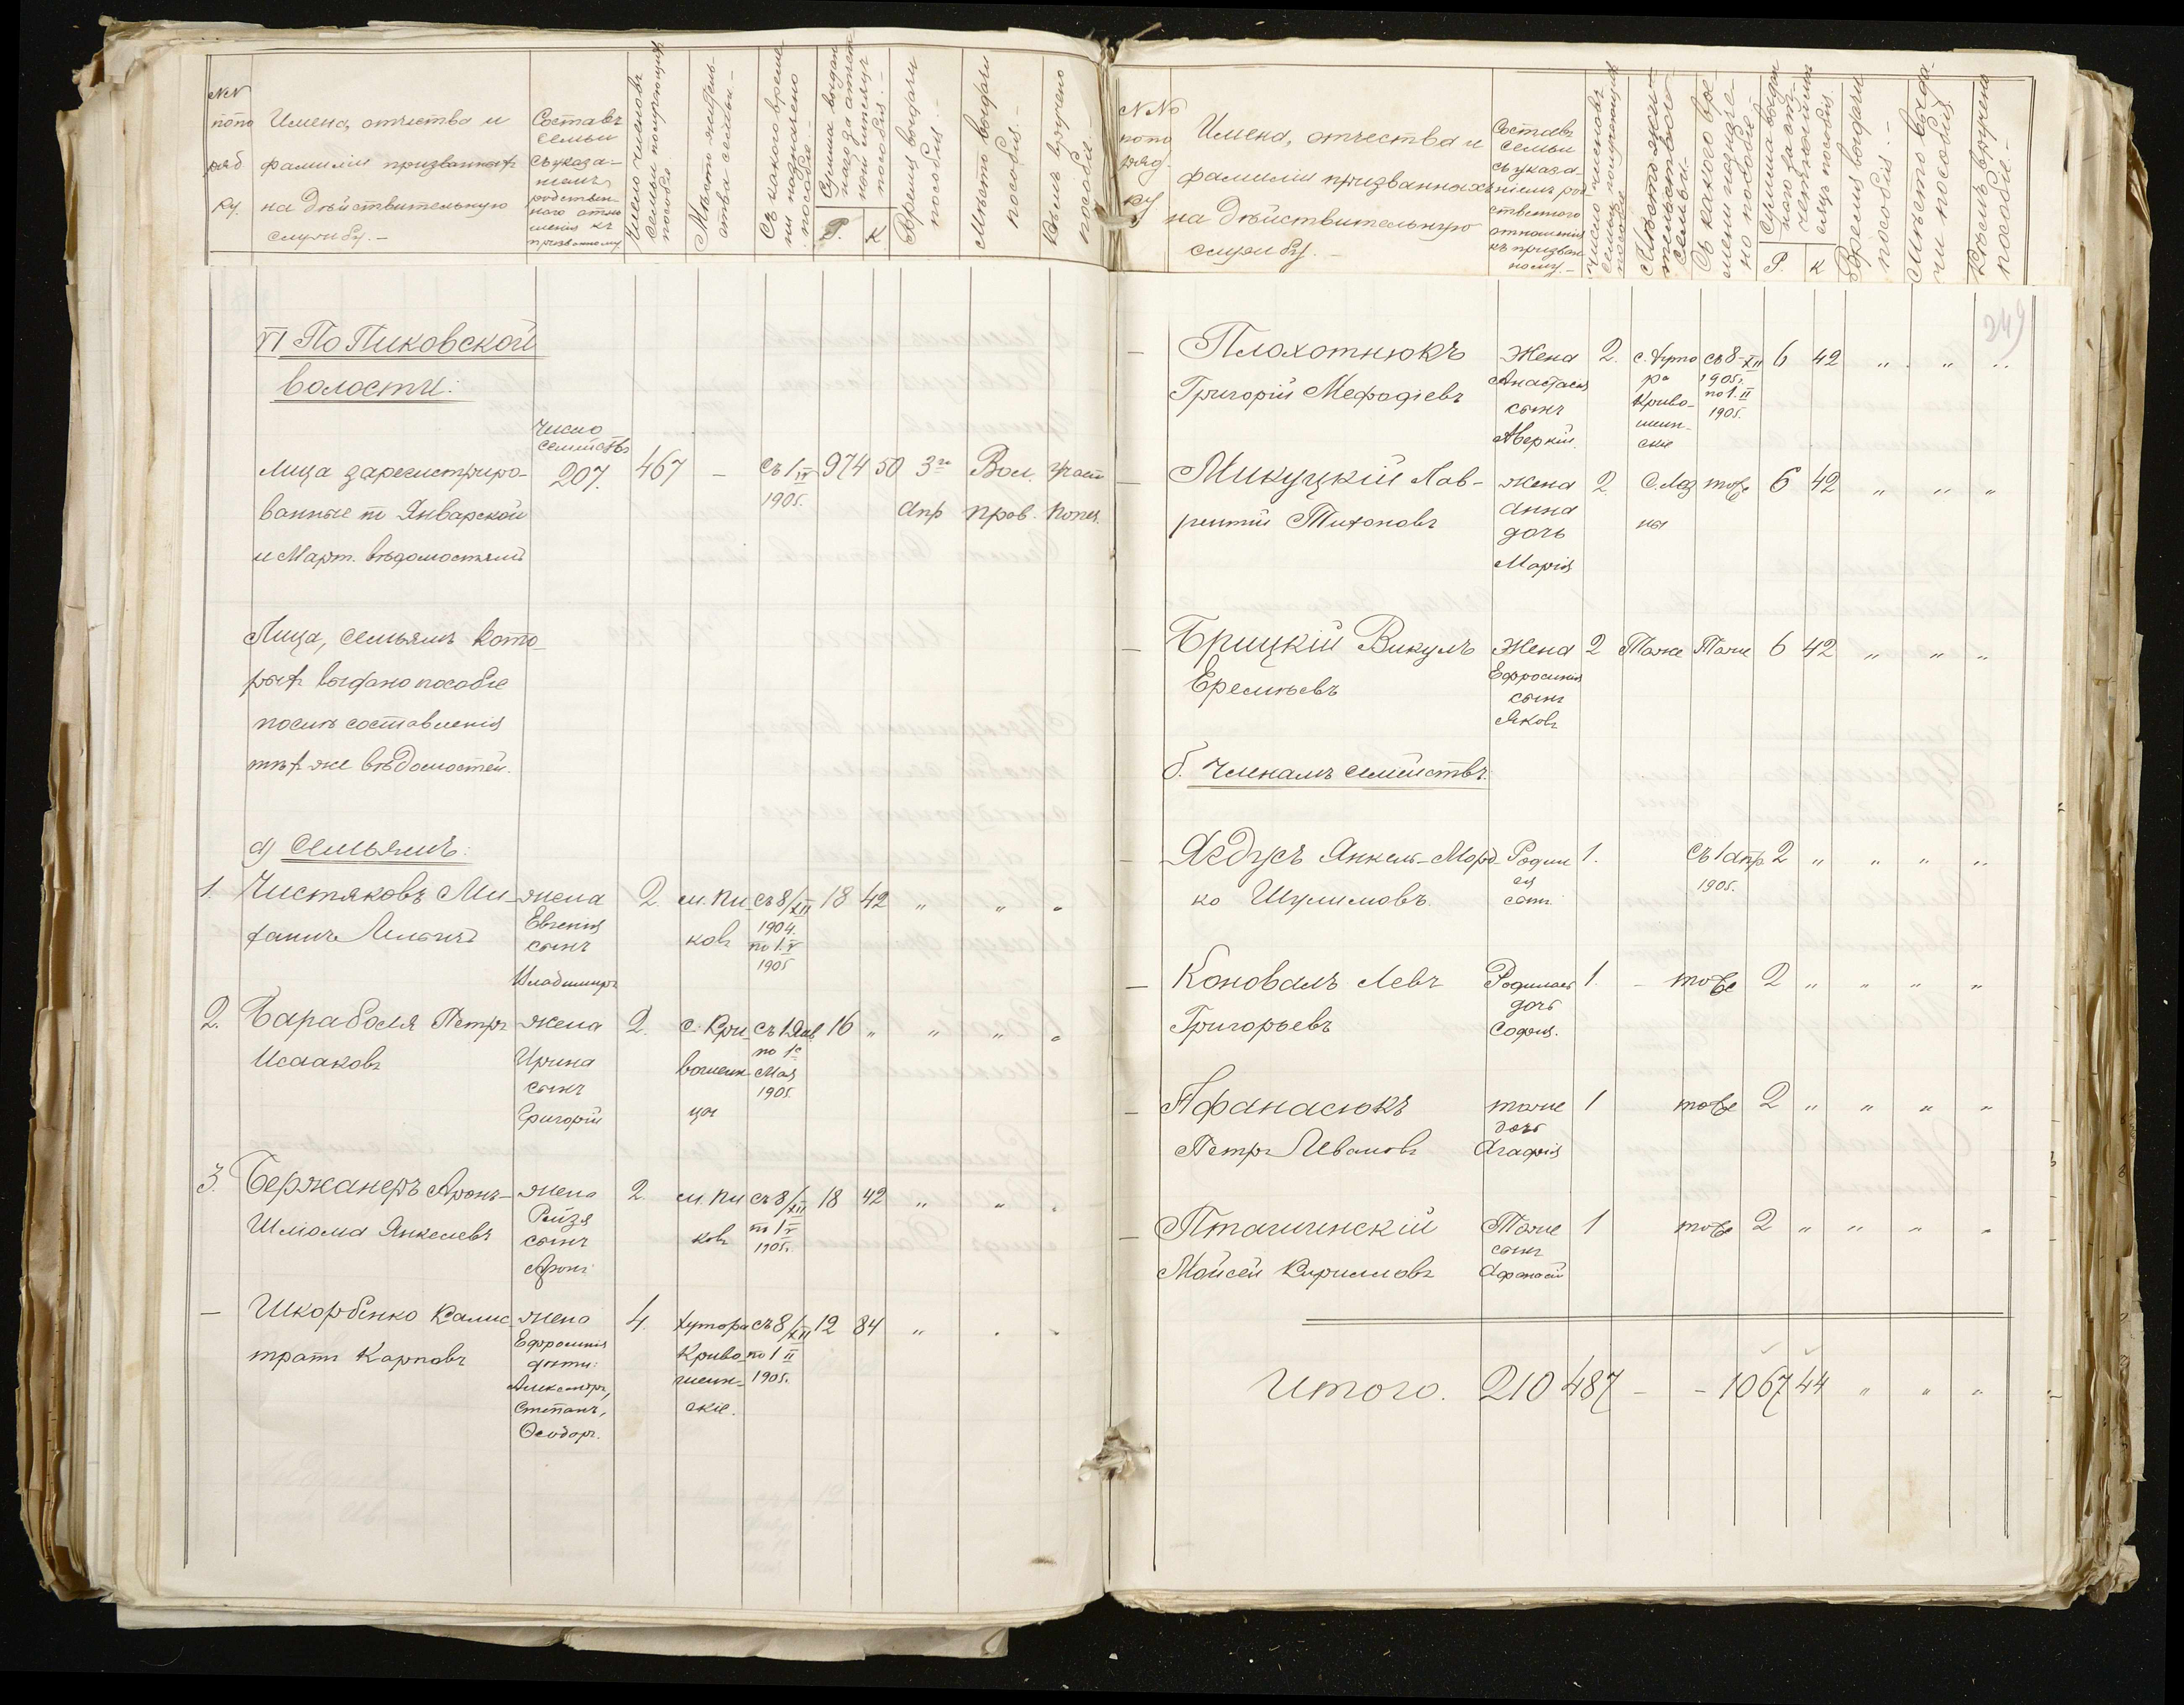 №№ по по ряд ку.
Имена, отчества и фамиліи призванныхъ на дѣйствительную службу. –
Составъ семьи съ указаніемъ родственнаго отношенія къ призванному
Число членовъ семьи получающихъ пособіе
Мѣсто жительства семьи –
Съ какого времени назначено пособіе –
Сумма выданнаго за отчетный мѣсяцъ пособія. –
Р. К
Время выдачи пособія –
Мѣсто выдачи пособія –
Кѣмъ вручено пособіе
VI По Пиковской
волости:
Число
семействъ
Лица зарегистриро- 207. 467 – Съ 1/IV 974 50 3го Вол. Участ
ванные по Январской 1905. Апр прав. Попеч.
и Март. вѣдомостямъ
Лица, семьямъ кото-
рыхъ выдано пособіе
послѣ составленія
тѣхъ же вѣдомостей.
а) Семьямъ:
1. Чистяковъ Ми- жена 2. м. Пи- съ 8/XII 18 42 " " "
Евгенія 1904.
сынъ ковъ по 1. V
Владимиръ 1905
2. Бараболя Петръ жена 2. с. Кри- съ 1 Янв 16 " " " "
Исааковъ Ирина по 1е
сынъ вошеин- Мая
Григорій цы 1905.
3. Бержанеръ Аронъ- жена 2. м. Пи съ 8/XII 18 42 " " "
Шлома Янкелевъ Рейзя по 1 V
сынъ ковъ 1905.
Аронъ
– Шкорбенко Калис- жена 4. Хутора съ 8/XII 12 84 " " "
тратъ Карповъ Ефросинія Криво- по 1 II
дѣти: шеин- 1905.
Александръ, скіе.
Степанъ,
Ѳеодоръ.
№№ по по ряд ку
Имена, отчества и фамиліи призванныхъ на дѣйствительную службу. –
Составъ семьи съ указаніемъ родственнаго отношенія къ призванному –
Число членовъ семьи получающихъ пособіе
Мѣсто жительства семьи. –
Съ какого времени назначено пособіе
Сумма выданнаго за отчетный мѣсяцъ пособія.
Р. К
Время выдачи пособія –
Мѣсто выдачи пособія.
Кѣмъ вручено пособіе. –
249
– Плохотнюкъ Жена 2. с. Хуто съ 8-XII 6 42 " " "
Григорій Мефодіевъ Анастасія ра 1905.
сынъ Криво- по 1. II
Аверкій. шеин- 1905.
скіе
– Микуцкій Лав- жена 2. с. Лоз тоже 6 42 " " "
рентій Тихоновъ Анна ны
дочь
Марія
– Брицкій Викулъ Жена 2 Тоже Тоже 6 42 " " "
Еремѣевъ Ефросинія
сынъ
Яковъ
б. Членамъ семействъ.
– Ягдусъ Янкель-Морд- Родил 1. съ 1 Апр 2 " " " "
ко Шулимовъ ся 1905.
сынъ
– Коновалъ Левъ Родилась 1. – тоже 2 " " " "
Григорьевъ дочь
Софія.
– Афанасюкъ тоже 1 тоже 2 " " " "
Петръ Ивановъ дочь
Агафія
– Пташинскій Тоже 1 тоже 2 " " " "
Мойсей Кирилловъ сынъ
Афанасій
Итого. 210 487 – – 1067 44 " " "